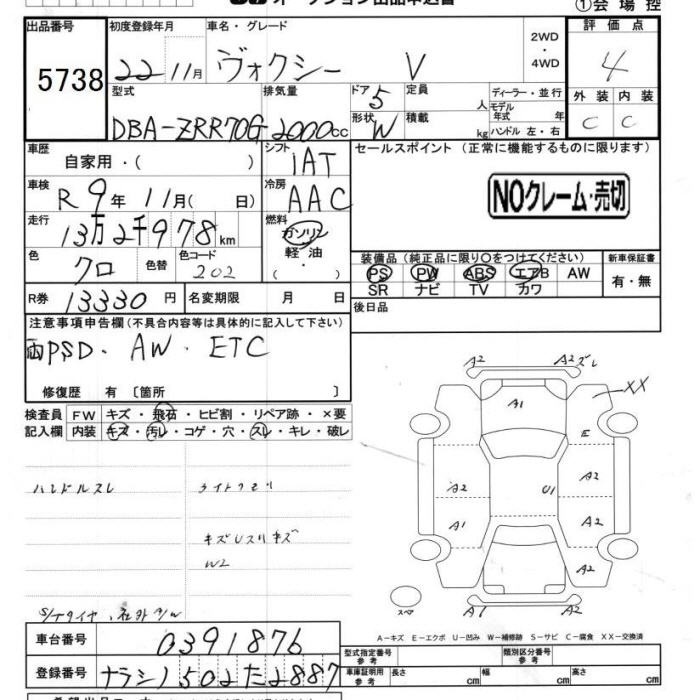 ①会場控
出品番号
5738
初度登録年月
22年11月
車名・グレード
ヴォクシー V
2WD
・
4WD
評価点
4
型式
DBA-ZRR70G
排気量
2000cc
ドア
5
定員
人
形状
W
積載
kg
ディーラー・並行
モデル
年式 年
ハンドル 左・右
外装 内装
C C
車歴
自家用・( )
シフト
IAT
セールスポイント (正常に機能するものに限ります)
車検
R 9年 11月( 日)
冷房
AAC
NOクレーム・売切
走行
13万2千978km
燃料
ガソリン
軽油
( ・ )
色
クロ
色替
色コード
202
装備品(純正品に限り○をつけてください)
PS PW ABS エアB AW
SR ナビ TV カワ
新車保証書
有・無
R券
13330円
名変期限 月 日
後日品
注意事項申告欄(不具合内容等は具体的に記入して下さい)
両PSD . AW . ETC
修復歴 有〔箇所 〕
検査員 FW キズ・飛石・ヒビ割・リペア跡・×要
記入欄 内装 キズ・汚レ・コゲ・穴・スレ・キレ・破レ
ハンドルスレ ライトクモリ
W2
S/Tタイヤ、社外A/W
A2 A2ズレ
XX
A1
E
A2 A2
U1
A1 A2
A2
スペア
A1 A2
A-キズ E-エクボ U-凹み W-補修跡 S-サビ C-腐食 XX-交換済
車台番号
0391876
登録番号
ナラシノ502た2887
型式指定番号
参考
類別区分番号
参考
車庫証明用
参考
長さ cm 幅 cm 高さ cm